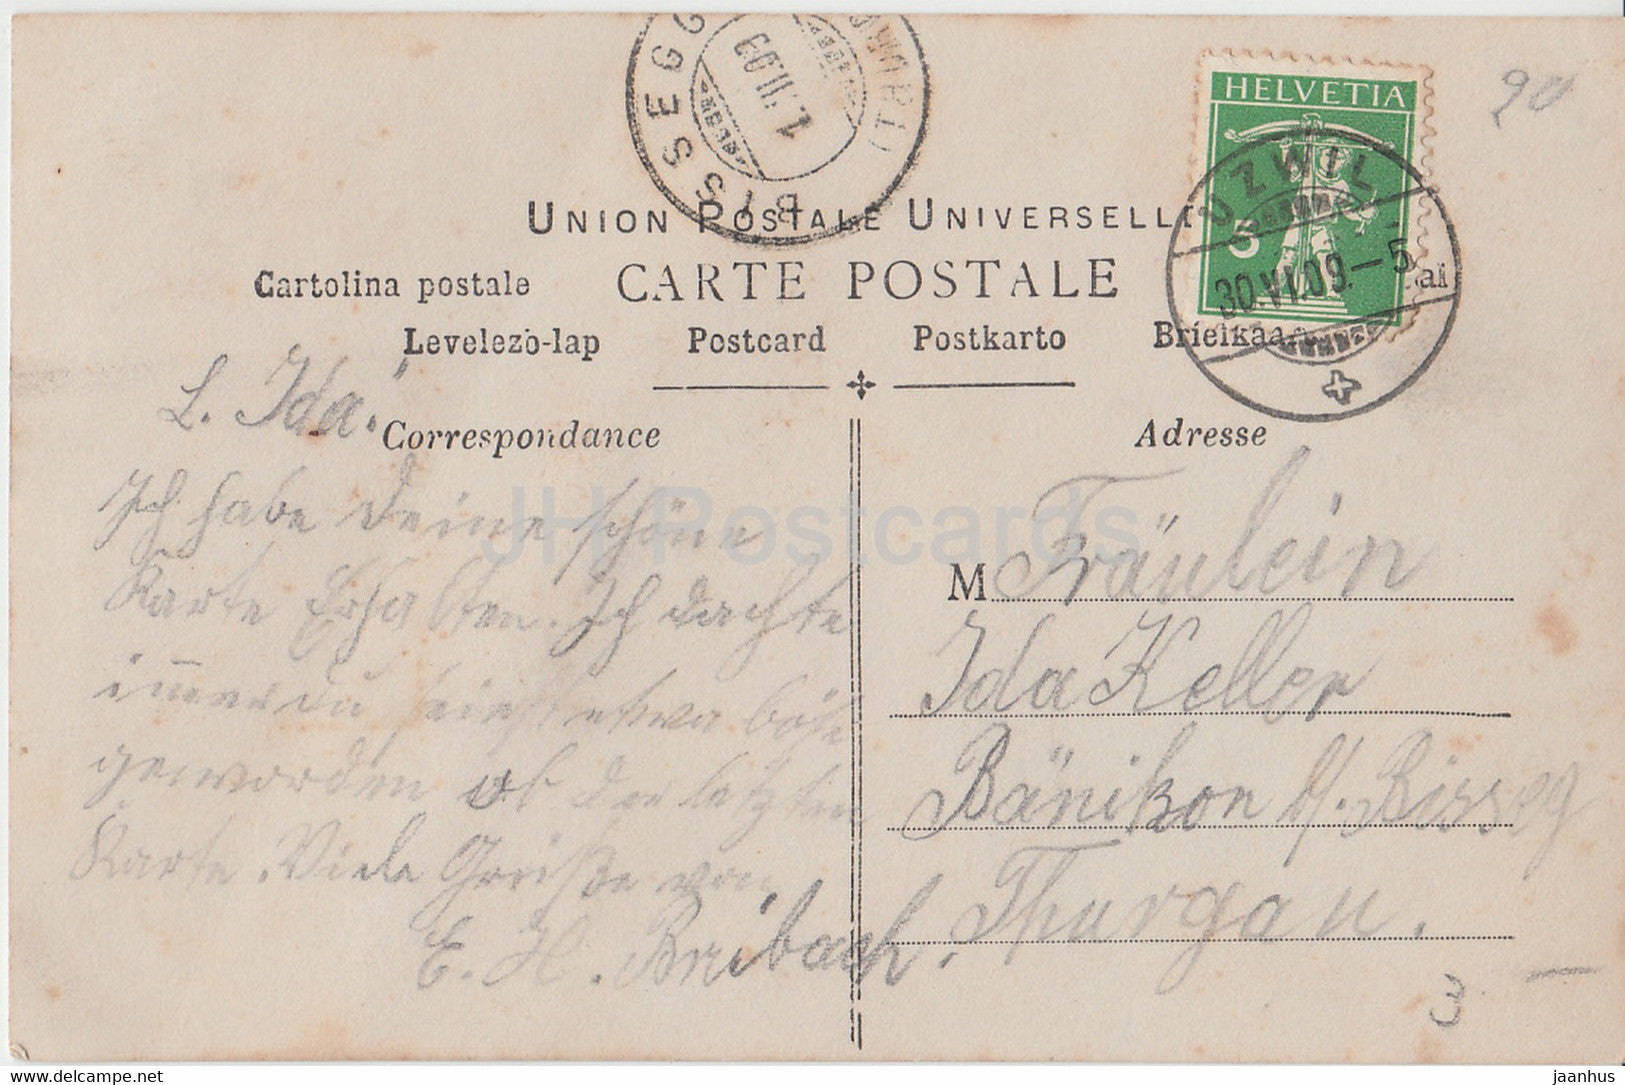 BISSEGG
(THURGAU)
1.VII.09
HELVETIA
5
UZWIL
30.VI.09.–5
90
UNION POSTALE UNIVERSELLE
Cartolina postale CARTE POSTALE
Levelezö-lap Postcard Postkarto Briefkaart
Correspondance
Adresse
L. Ida!
Ich habe deine schöne
Karte Erhalten. Ich dachte
immer du seiest etwa böse
geworden ob der letzten
Karte. Viele Grüße von
E. H. Breibach.
M Fräulein
Ida Keller
Bänikon b/. Bissegg
Thurgau.
3 –
JH Postcards
www.delcampe.net
jaanhus